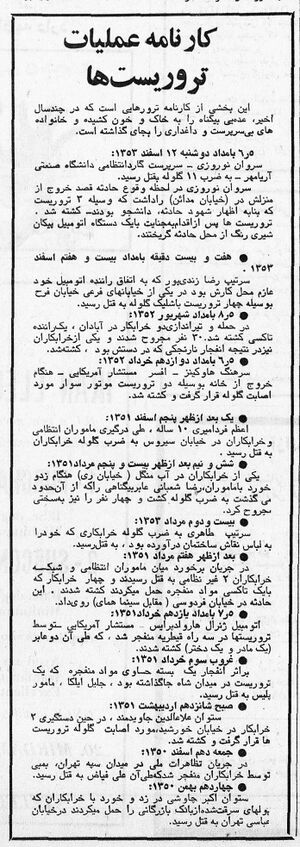 کارنامه عملیات
تروریست‌ها
این بخشی از کارنامه ترورهایی است که در چندسال
اخیر، عده‌یی بیگناه را به خاک و خون کشیده و خانواده
های بی‌سرپرست و داغداری را بجای گذاشته است.
۵ر۶ بامداد دوشنبه ۱۲ اسفند ۱۳۵۳:
سروان نوروزی - سرپرست گاردانتظامی دانشگاه صنعتی
آریامهر - به ضرب ۱۱ گلوله بقتل رسید.
سروان نوروزی در لحظه وقوع حادثه قصد خروج از
منزلش در (خیابان مدائن) راداشت که وسیله ۳ تروریست
که بنابه اظهار شهود حادثه، دانشجو بودند- کشته شد .
تروریست ها پس ازاقدام‌به‌جنایت بایک دستگاه اتومبیل پیکان
شیری رنگ از محل حادثه گریختند.
● هفت و بیست دقیقه بامداد بیست و هفتم اسفند
۱۳۵۳ .
سرتیپ رضا زندی‌پور که به اتفاق راننده اتومبیل خود
عازم محل کارش بود در یکی از خیابانهای فرعی خیابان فرح
بوسیله چهار تروریست باشلیک گلوله به قتل رسید.
● ۵ر۸ بامداد شهریور ۱۳۵۲:
در حمله و تیراندازی‌دو خرابکار در آبادان ، یک‌راننده
تاکسی کشته شد، ۳۰ نفر مجروح شدند و یکی ازخرابکاران
نیزدر نتیجه انفجار نارنجکی که در دستش بود ، کشته‌شد.
● ۵ر۶ بامداد دوازدهم خرداد ۱۳۵۲:
سرهنگ هاوکینز - افسر مستشار آمریکایی - هنگام
خروج از خانه بوسیله دو تروریست موتور سوار مورد
اصابت گلوله قرار گرفت و کشته شد.
● یک بعد ازظهر پنجم اسفند ۱۳۵۱:
اعظم فردامیری ۱۰ ساله ، طی درگیری ماموران انتظامی
وخرابکاران در خیابان سیروس به ضرب گلوله خرابکاران
به قتل رسید .
● شش و نیم بعد ازظهر بیست و پنجم مرداد ۱۳۵۱:
یکی از خرابکاران در آب منگل ( خیابان ری) هنگام زدو
خورد باماموران،رضا شعبانی عابربیگناهی راکه از آن‌حدود
می گذشت به ضرب گلوله کشت و چهار نفر را نیز به‌سختی
مجروح کرد.
● بیست و دوم مرداد ۱۳۵۳:
سرتیپ طاهری به ضرب گلوله خرابکاری که خودرا
به لباس نقاش ساختمان درآورده بود ، به قتل‌رسید.
● بعد ازظهر هفتم مرداد ۱۳۵۱:
در جریان برخورد میان ماموران انتظامی و شبکه‌سه
خرابکاران ۲ غیر نظامی به قتل رسیدند و چهار خرابکار که
بایک تاکسی مواد منفجره حمل میکردند کشته شدند. این
حادثه در خیابان فردوسی ( مقابل سینما همای) روی‌داد.
● ۵ر۷ بامداد یازدهم خرداد ۱۳۵۱:
اتومبیل ژنرال هارولدپرایس - مستشار آمریکایی توسط
تروریستها در سه راه قیطریه منفجر شد ، که طی آن دوعابر
(یک مادر و یک دختر) کشته شدند.
● غروب سوم خرداد ۱۳۵۱:
براثر انفجار یک بسته حاوی مواد منفجره که یک
تروریست در میدان شاه جاگذاشته بود ، جلیل ایلکا ، مامور
پلیس به قتل رسید.
● صبح شانزدهم اردیبهشت ۱۳۵۱:
ستوان علاءالدین جاویدمند ، در حین دستگیری ۲
خرابکار در خیابان خورشید،مورد اصابت گلوله تروریست
ها قرار گرفت و کشته شد.
● جمعه دهم اسفند ۱۳۵۰ :
در جریان تظاهرات ملی در میدان سپه تهران، بمبی
توسط خرابکاران منفجر شدکه‌طی‌آن علی فیاض به قتل رسید.
● چهاردهم بهمن ۱۳۵۰:
ستوان اکبر جاوشی در زد و خورد با خرابکاران که
پولهای سرقت‌شده‌ازبانک بازرگانی را حمل میکردند درخیابان
عباسی تهران به قتل رسید.